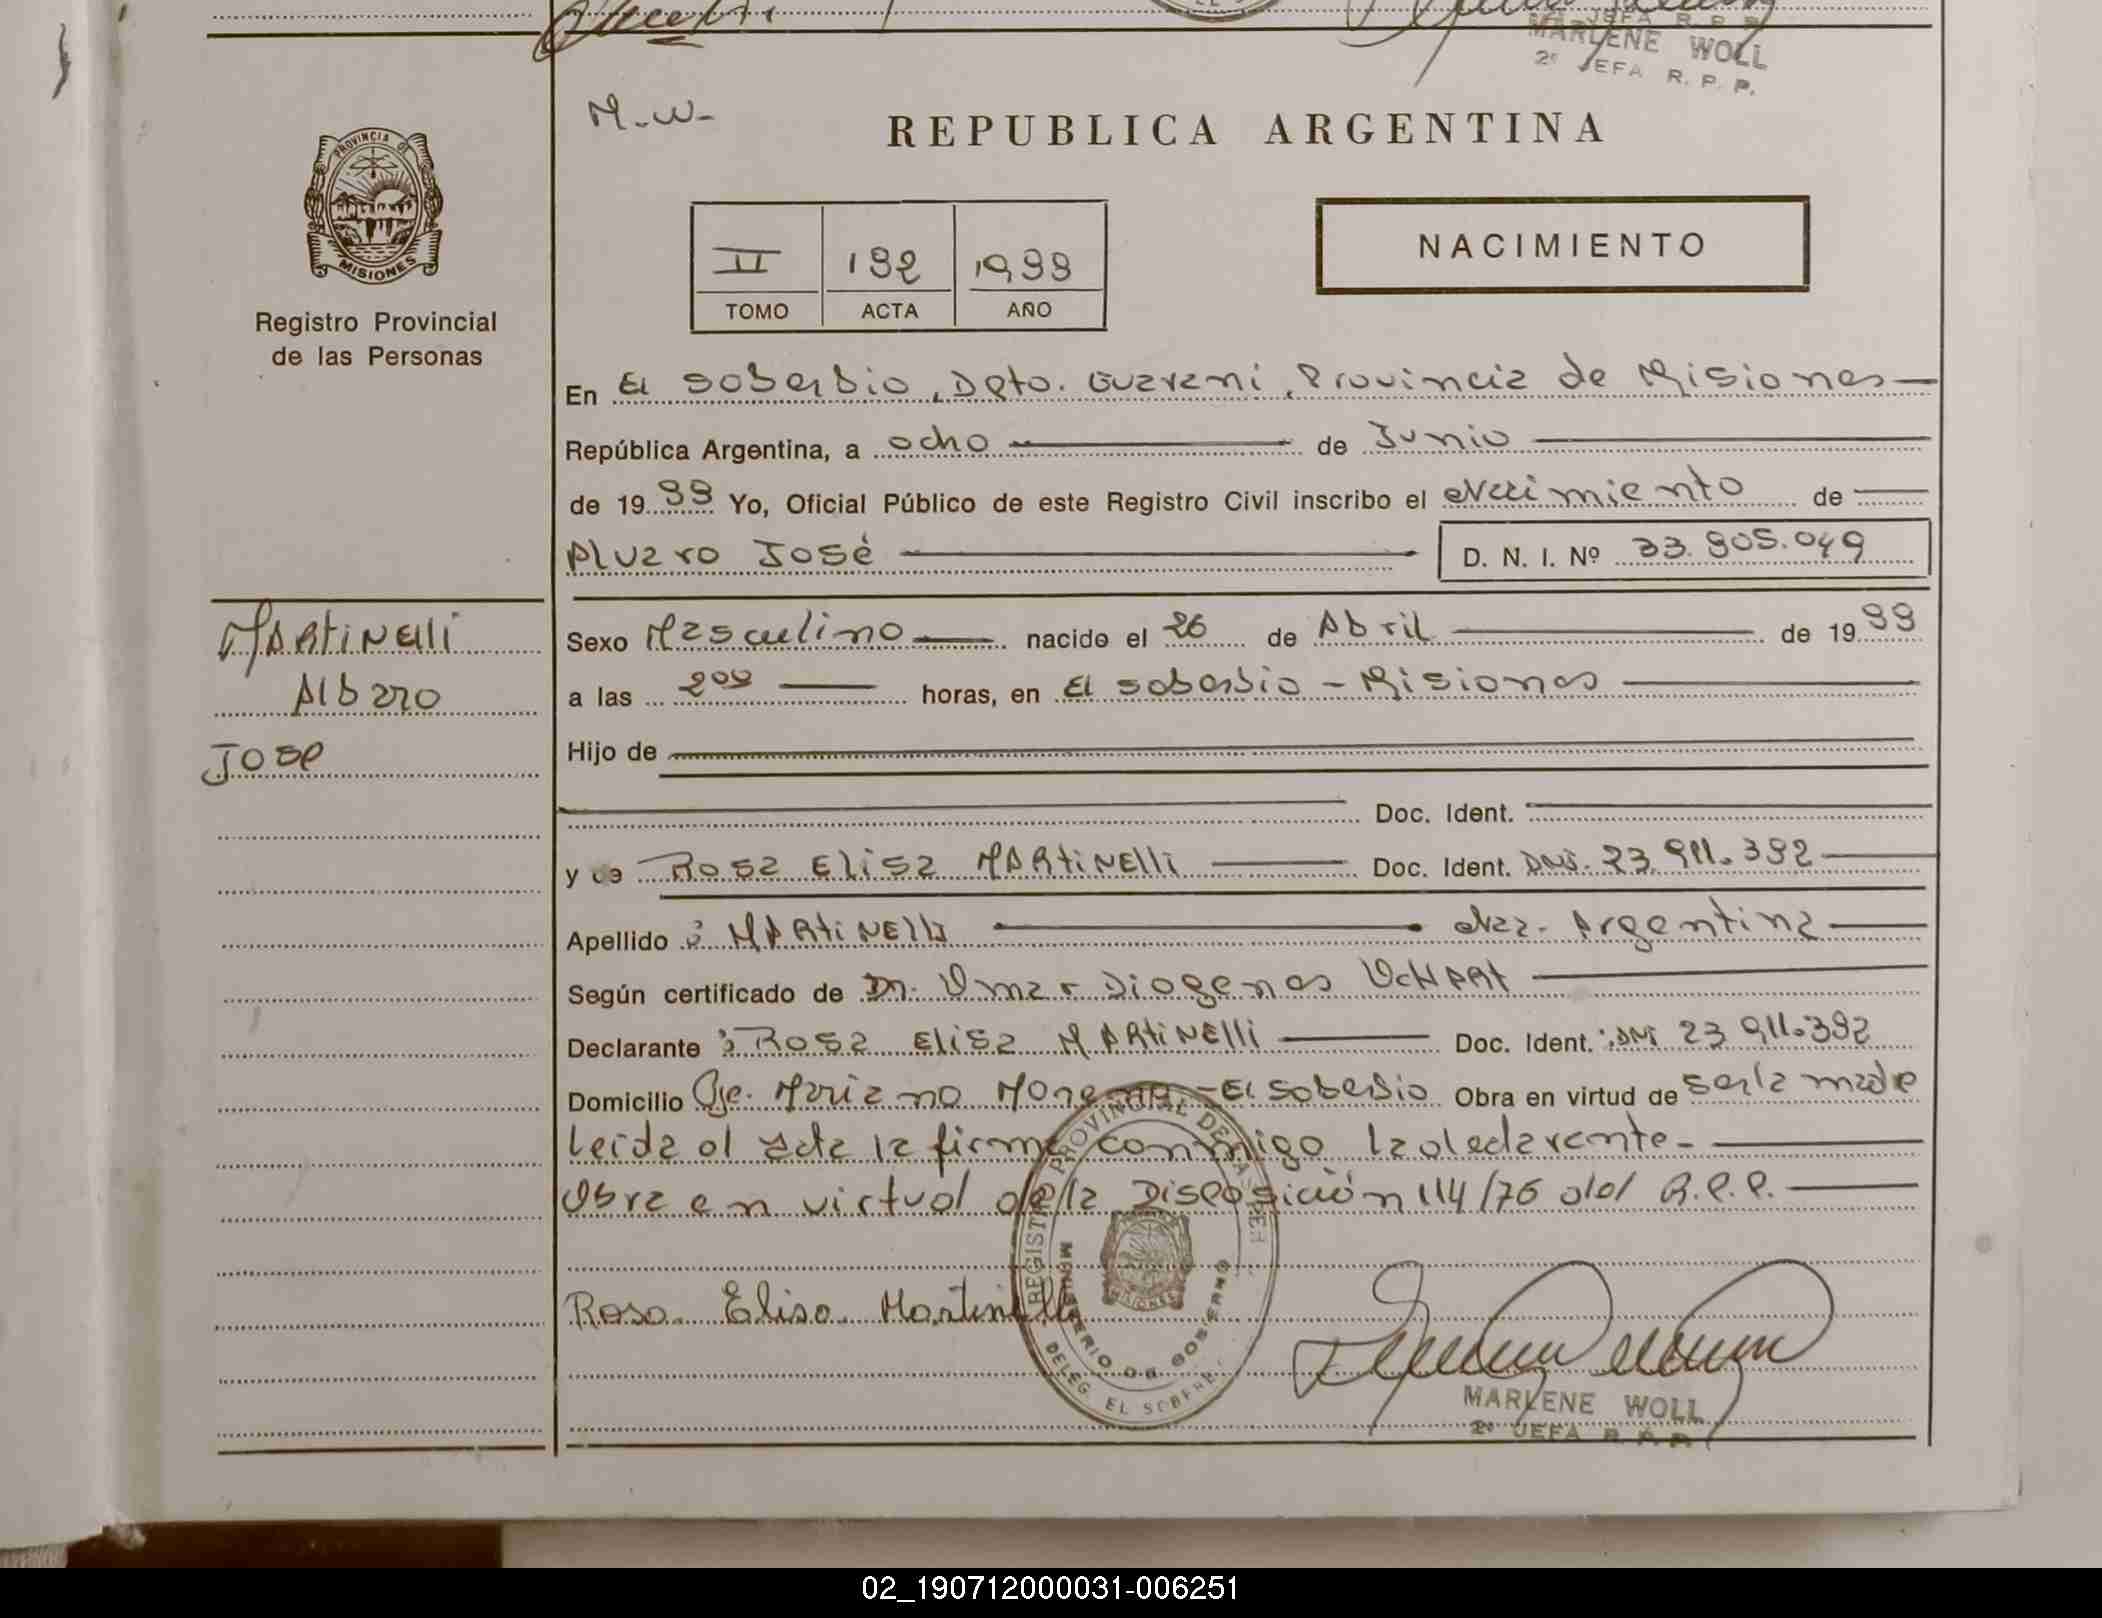 MARLENE WOLL
2º JEFA R. P. P.
M.W-
REPUBLICA ARGENTINA
PROVINCIA DE
MISIONES
Registro Provincial
de las Personas
II 192 1999
TOMO ACTA AÑO
NACIMIENTO
En El Soberbio, Dpto. Guarani, Provincia de Misiones
República Argentina, a ocho de Junio
de 1999 Yo, Oficial Público de este Registro Civil inscribo el Nacimiento de
Alvaro José D. N. I. Nº 33.905.049
MARtiNElli
Albaro
Jose
Sexo Masculino nacido el 26 de Abril de 1999
a las horas, en El Soberbio - Misiones
Hijo de
Doc. Ident.
y de Rosa Elisa MARtiNElli Doc. Ident. DNI. 23.911.392
Apellido : MARtiNElli Nac. Argentina
Según certificado de Dr. Omar Diogenes
Declarante : Rosa Elisa MARtiNElli Doc. Ident. : DNI 23 911.392
Domicilio Mariano Moreno - El Soberbio Obra en virtud de ser la madre
Leida el Acta la firma conmigo la declarante-
Obra en virtud de la Disposición 114/76 del R.P.P.
REGISTRO PROVINCIAL DE LAS PER
MINISTERIO DE GOBIERNO
MISIONES
DELEG. EL SOBERB
Rosa Elisa Martinelli
MARLENE WOLL
2º JEFA R. P. P.
02_190712000031-006251